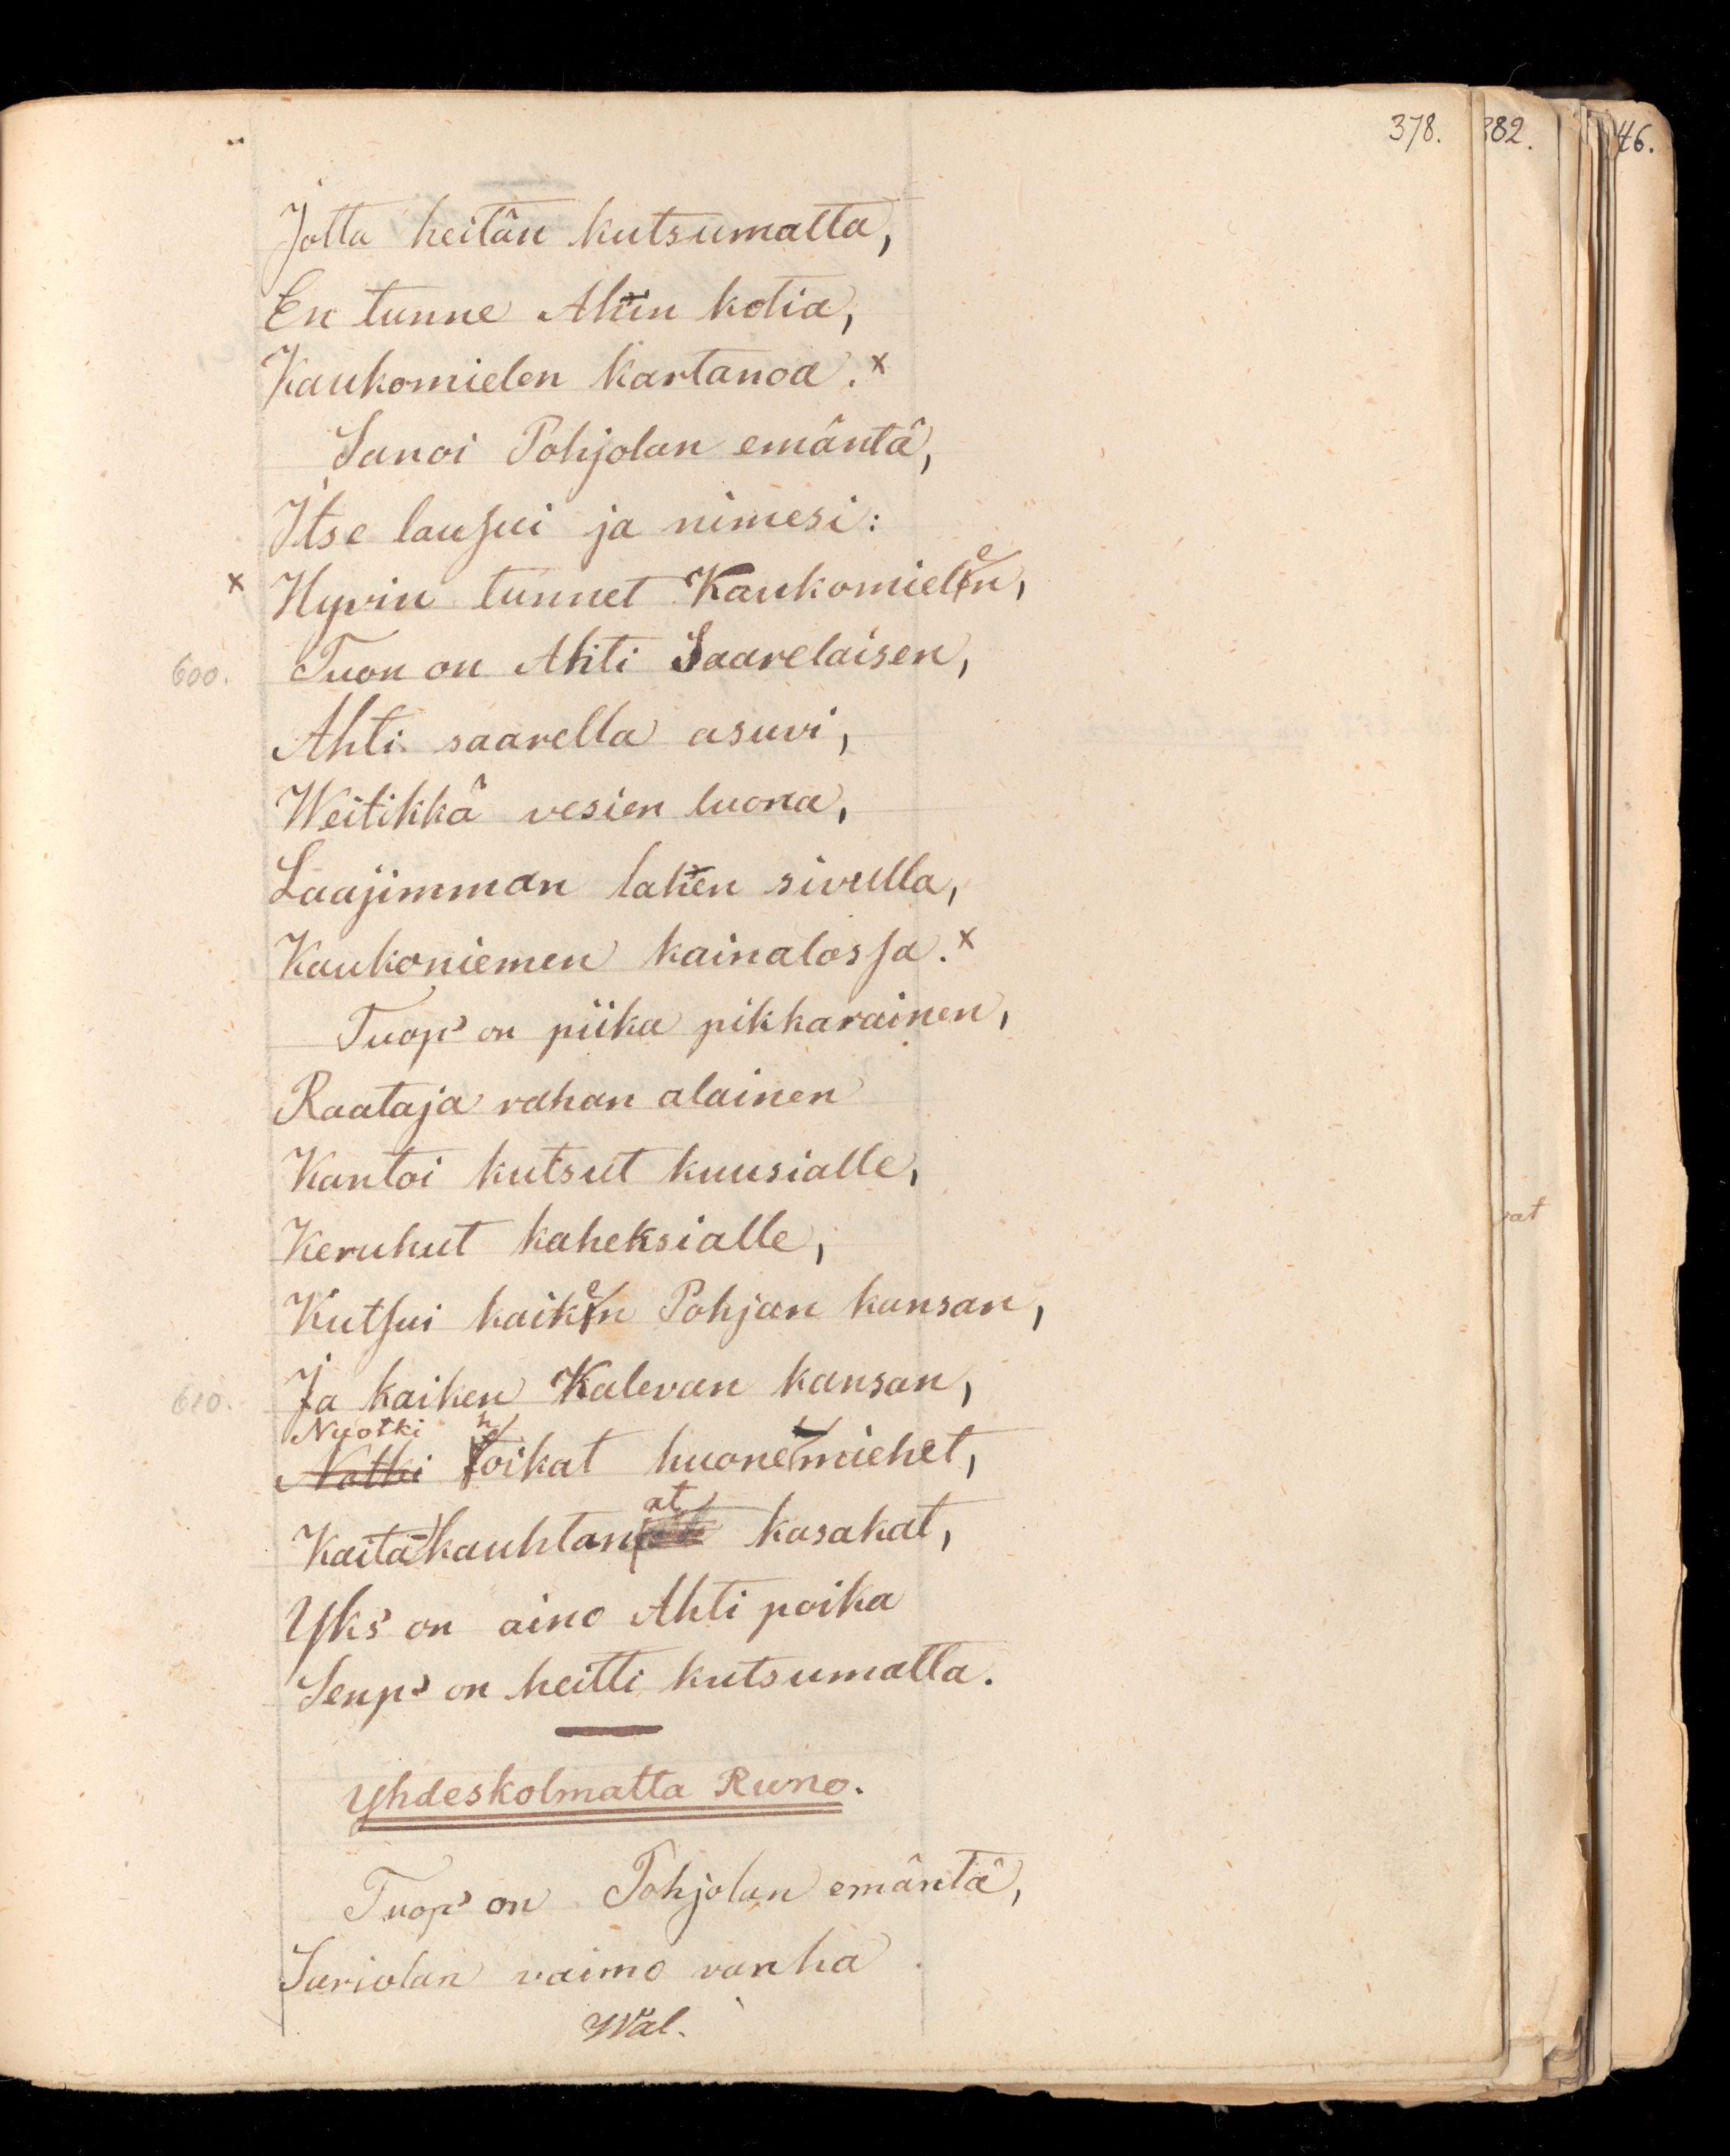 378.
382.
46.
Jotta heitän kutsumatta,
En tunne Ahtin kotia,
Kaukomielen kartanoa.x
Sanoi Pohjolan emäntä,
Itse lausui ja nimesi:
x Hyvin tunnet Kaukomielen,
600. Tuon on Ahti Saarelaisen,
Ahti saarella asuvi,
Weitikkä vesien luona,
Laajimman lahen sivulla,
Kaukoniemen kainalossa.x
Tuop' on piika pikkarainen,
Raataja rahan alainen
Kantoi kutsut kuusialle,
Keruhut kaheksialle,
Kutsui kaiken Pohjan kansan,
610. Ja kaiken Kalevan kansan,
Nuotki
Notki hoikat huonemiehet,
Kaita-kauhtanat kasakat,
Yks' on aino Ahti poika
Senp' on heitti kutsumatta.
Yhdeskolmatta Runo.
Tuop' on Pohjolan emäntä,
Sariolan vaimo vanha
Wäl.
vat